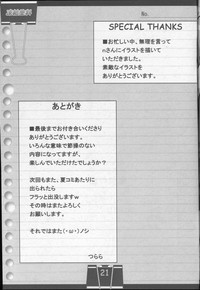 SPECIAL THANKS
■お忙しい中、無理を言って
nさんにイラストを描いて
いただきました。
素敵なイラストを
ありがとうございます。
あとがき
■最後までお付き合いくださり
ありがとうございます。
いろんな意味で節操のない
内容になってますが、
楽しんでいただけたでしょうか?
次回もまた、夏コミあたりに
出られたら
フラッと出没しますw
その時はまたよろしく
お願いします。
それではまた(・ω・)ノシ
つらら
21